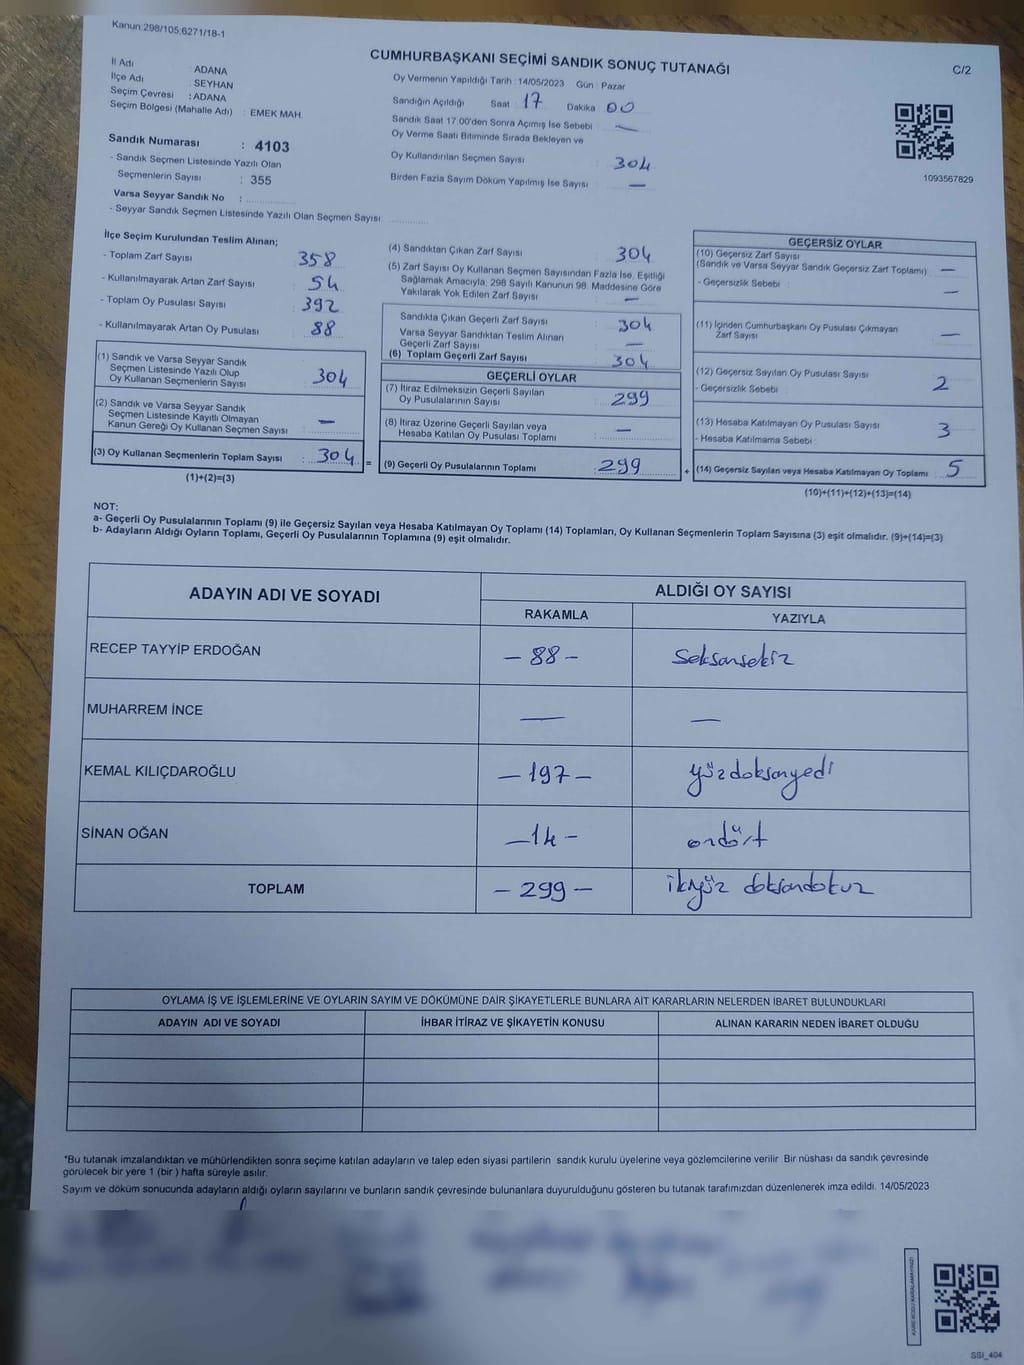 Kanun:298/105;6271/18-1
CUMHURBAŞKANI SEÇİMİ SANDIK SONUÇ TUTANAĞI
C/2
İl Adı : ADANA
İlçe Adı : SEYHAN
Seçim Çevresi : ADANA
Seçim Bölgesi (Mahalle Adı) : EMEK MAH.
Oy Vermenin Yapıldığı Tarih : 14/05/2023 Gün : Pazar
Sandığın Açıldığı Saat : 17 Dakika 00
Sandık Saat 17:00'den Sonra Açımış İse Sebebi : —
Oy Verme Saati Bitiminde Sırada Bekleyen ve
Oy Kullandırılan Seçmen Sayısı : 304
Birden Fazla Sayım Döküm Yapılmış İse Sayısı : —
1093567829
Sandık Numarası : 4103
- Sandık Seçmen Listesinde Yazılı Olan
Seçmenlerin Sayısı : 355
Varsa Seyyar Sandık No :
- Seyyar Sandık Seçmen Listesinde Yazılı Olan Seçmen Sayısı
İlçe Seçim Kurulundan Teslim Alınan;
- Toplam Zarf Sayısı : 358
- Kullanılmayarak Artan Zarf Sayısı : 54
- Toplam Oy Pusulası Sayısı : 392
- Kullanılmayarak Artan Oy Pusulası : 88
(1) Sandık ve Varsa Seyyar Sandık
Seçmen Listesinde Yazılı Olup
Oy Kullanan Seçmenlerin Sayısı : 304
(2) Sandık ve Varsa Seyyar Sandık
Seçmen Listesinde Kayıtlı Olmayan
Kanun Gereği Oy Kullanan Seçmen Sayısı : —
(3) Oy Kullanan Seçmenlerin Toplam Sayısı : 304 =
(1)+(2)=(3)
(4) Sandıktan Çıkan Zarf Sayısı : 304
(5) Zarf Sayısı Oy Kullanan Seçmen Sayısından Fazla İse, Eşitliği
Sağlamak Amacıyla, 298 Sayılı Kanunun 98. Maddesine Göre
Yakılarak Yok Edilen Zarf Sayısı : —
Sandıkta Çıkan Geçerli Zarf Sayısı : 304
Varsa Seyyar Sandıktan Teslim Alınan
Geçerli Zarf Sayısı : —
(6) Toplam Geçerli Zarf Sayısı : 304
GEÇERLİ OYLAR
(7) İtiraz Edilmeksizin Geçerli Sayılan
Oy Pusulalarının Sayısı : 299
(8) İtiraz Üzerine Geçerli Sayılan veya
Hesaba Katılan Oy Pusulası Toplamı : —
(9) Geçerli Oy Pusulalarının Toplamı : 299 +
GEÇERSİZ OYLAR
(10) Geçersiz Zarf Sayısı
(Sandık ve Varsa Seyyar Sandık Geçersiz Zarf Toplamı) : —
- Geçersizlik Sebebi : —
(11) İçinden Cumhurbaşkanı Oy Pusulası Çıkmayan
Zarf Sayısı : —
(12) Geçersiz Sayılan Oy Pusulası Sayısı : 2
- Geçersizlik Sebebi :
(13) Hesaba Katılmayan Oy Pusulası Sayısı : 3
- Hesaba Katılmama Sebebi :
(14) Geçersiz Sayılan veya Hesaba Katılmayan Oy Toplamı : 5
(10)+(11)+(12)+(13)=(14)
NOT:
a- Geçerli Oy Pusulalarının Toplamı (9) ile Geçersiz Sayılan veya Hesaba Katılmayan Oy Toplamı (14) Toplamları, Oy Kullanan Seçmenlerin Toplam Sayısına (3) eşit olmalıdır. (9)+(14)=(3)
b- Adayların Aldığı Oyların Toplamı, Geçerli Oy Pusulalarının Toplamına (9) eşit olmalıdır.
ADAYIN ADI VE SOYADI ALDIĞI OY SAYISI
RAKAMLA YAZIYLA
RECEP TAYYİP ERDOĞAN – 88 – Seksensekiz
MUHARREM İNCE — —
KEMAL KILIÇDAROĞLU – 197 – yüzdoksanyedi
SİNAN OĞAN – 14 – ondört
TOPLAM – 299 – ikiyüz doksandokuz
OYLAMA İŞ VE İŞLEMLERİNE VE OYLARIN SAYIM VE DÖKÜMÜNE DAİR ŞİKAYETLERLE BUNLARA AİT KARARLARIN NELERDEN İBARET BULUNDUKLARI
ADAYIN ADI VE SOYADI İHBAR İTİRAZ VE ŞİKAYETİN KONUSU ALINAN KARARIN NEDEN İBARET OLDUĞU
*Bu tutanak imzalandıktan ve mühürlendikten sonra seçime katılan adayların ve talep eden siyasi partilerin sandık kurulu üyelerine veya gözlemcilerine verilir. Bir nüshası da sandık çevresinde
görülecek bir yere 1 (bir ) hafta süreyle asılır.
Sayım ve döküm sonucunda adayların aldığı oyların sayılarını ve bunların sandık çevresinde bulunanlara duyurulduğunu gösteren bu tutanak tarafımızdan düzenlenerek imza edildi. 14/05/2023
KARE KODU KARALAMAYINIZ!
SSI_404